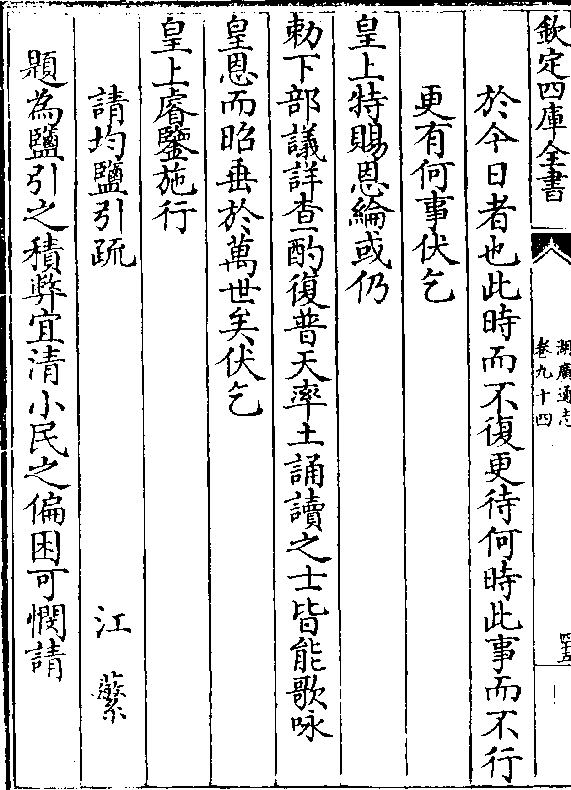 欽定四庫全書
湖廣通志
卷九十四
四五
於今日者也此時而不復更待何時此事而不行
更有何事伏乞
皇上特賜恩綸或仍
勅下部議詳查酌復普天率土誦讀之士皆能歌咏
皇恩而昭垂於萬世矣伏乞
皇上睿鑒施行
請均鹽引疏
江蘩
題為鹽引之積弊宜清小民之偏困可憫請